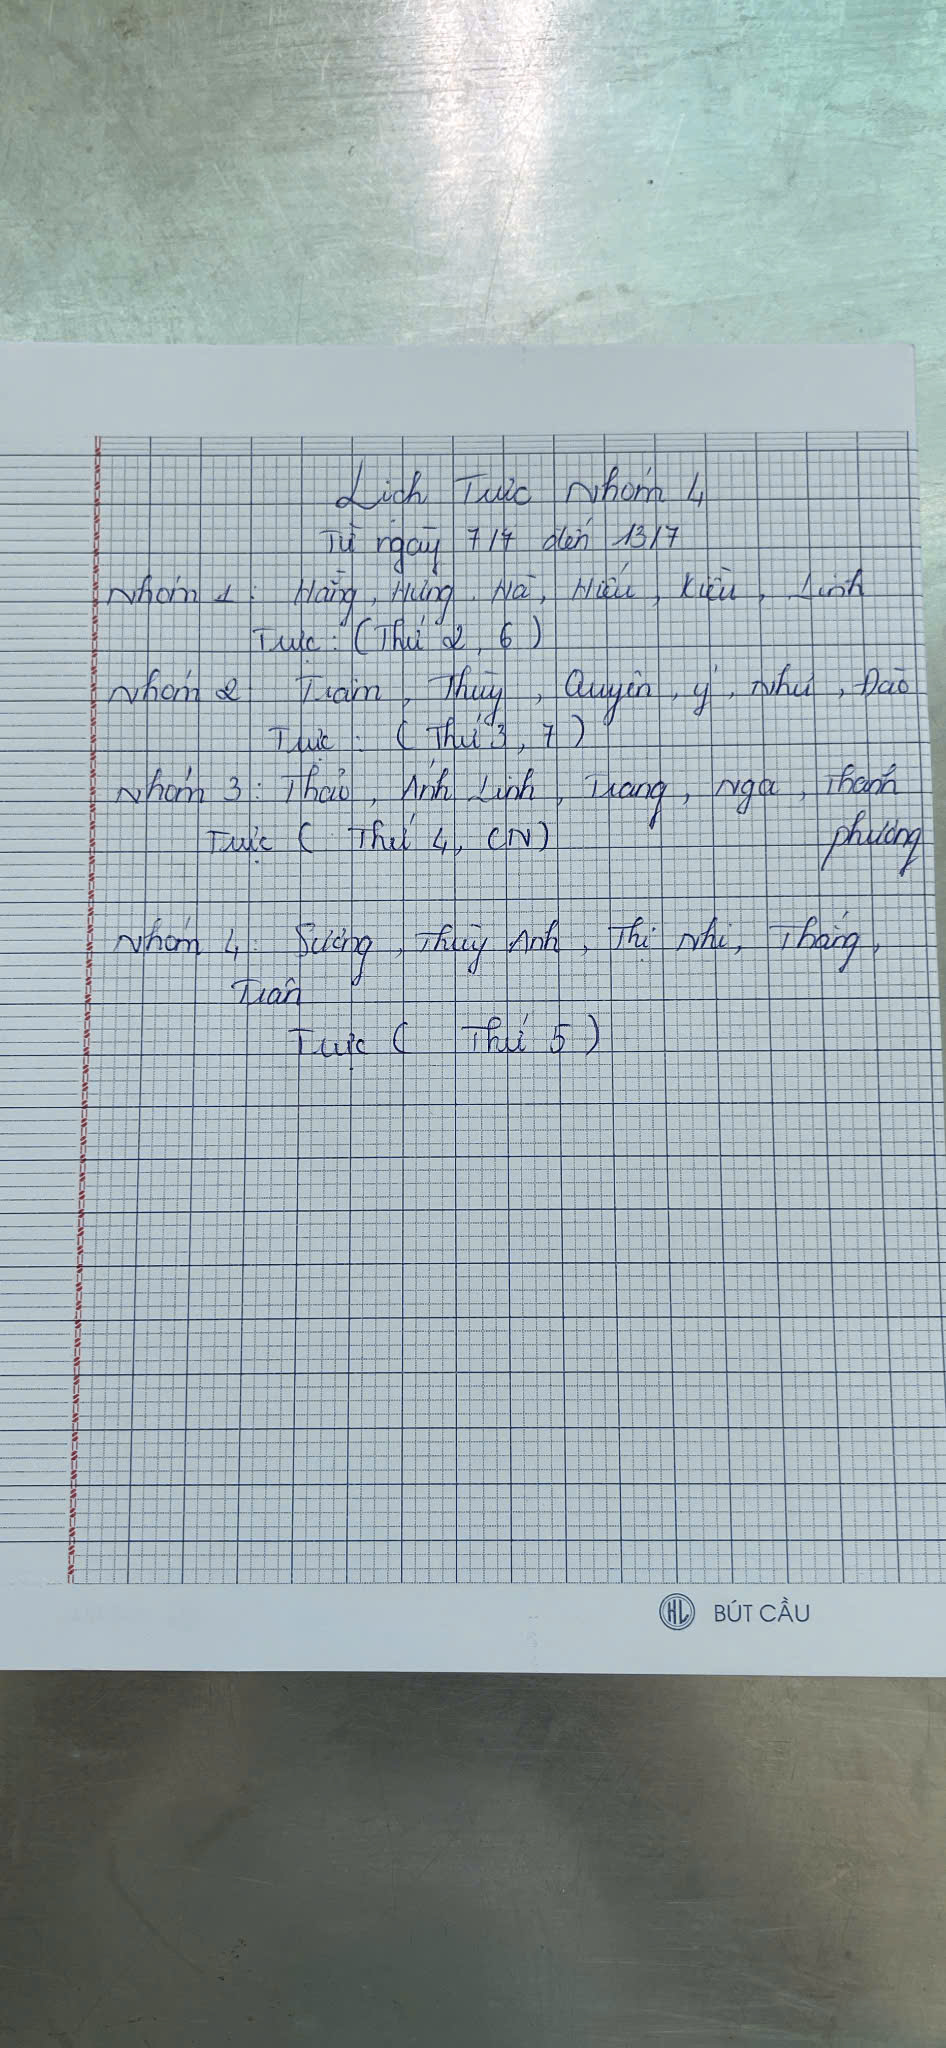 Lịch Trực Nhóm 4
Từ ngày 7/7 đến 13/7
Nhóm 1: Hằng, Hưng, Hà, Hiếu, Kiều, Linh
Trực: (Thứ 2, 6)
Nhóm 2: Trâm, Thùy, Quyên, Ý, Như, Đào
Trực: (Thứ 3, 7)
Nhóm 3: Thảo, Ánh Linh, Trang, Nga, Thanh
Phương
Trực ( Thứ 4, CN)
Nhóm 4: Sương, Thùy Anh, Thị Nhi, Thắng,
Trân
Trực ( Thứ 5)
HL BÚT CẦU